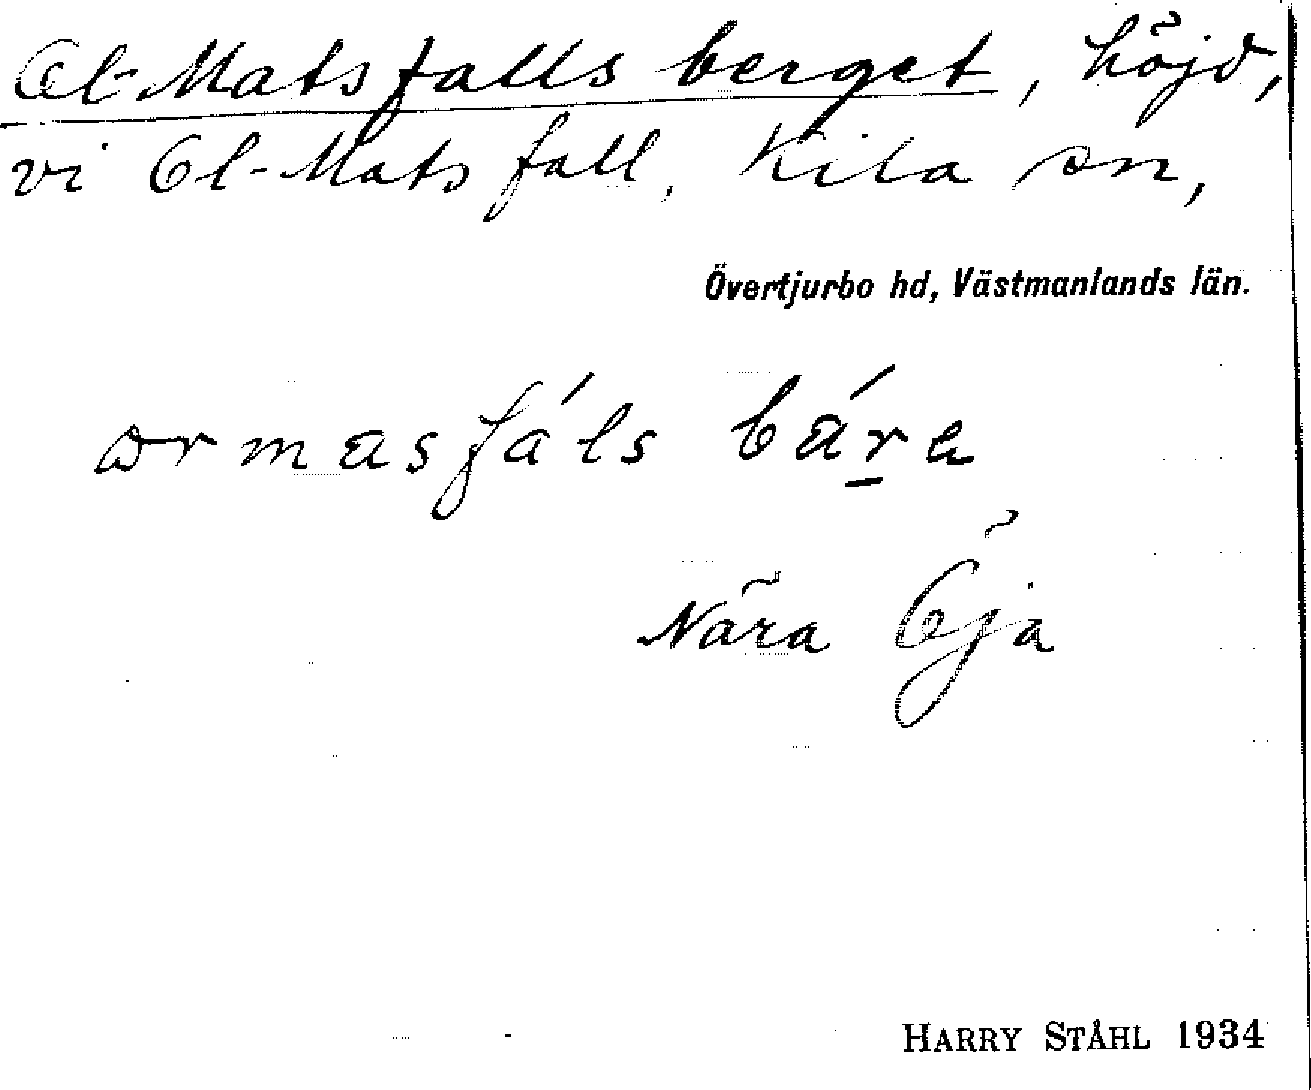 Ol-Matsfalls berget, höjd,
vi Ol-Matsfall, Kila sn,
Övertjurbo hd, Västmanlands län.
ormasfáls bára
Nära Öja
HARRY STÅHL 1934